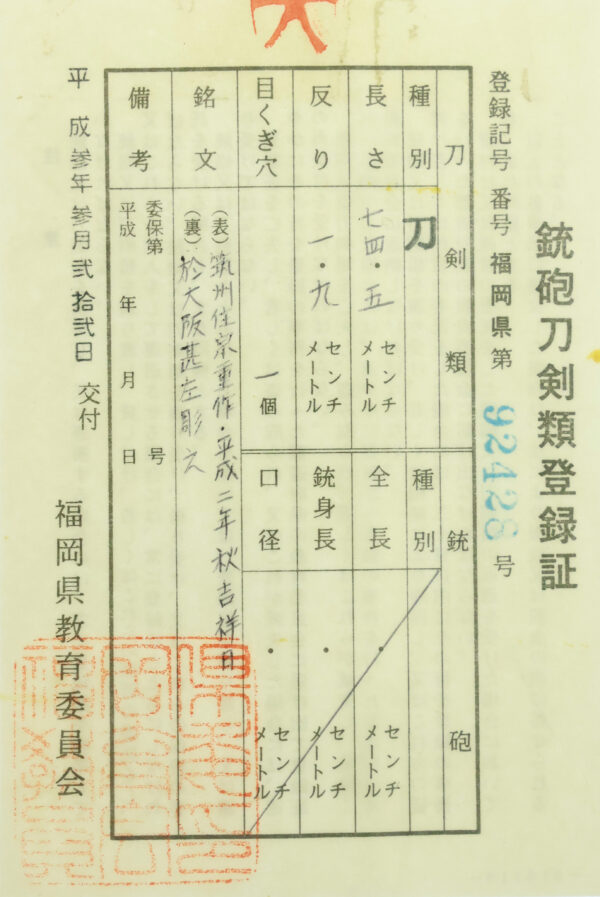 銃砲刀剣類登録証
登録記号番号 福岡県第 92428 号
刀剣類
種別 刀
長さ 七四・五 センチメートル
反り 一・九 センチメートル
目くぎ穴 一個
銘文
(表)筑州住宗重作・平成二年秋吉祥日
(裏)於大阪甚左彫之
備考
委保第 号
平成 年 月 日
銃砲
種別
全長 ・ センチメートル
銃身長 ・ センチメートル
口径 ・ センチメートル
平成参年参月弐拾弐日 交付
福岡県教育委員会